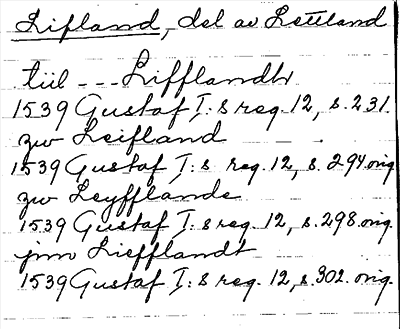 Lifland, del av Lettland
tiil --- Lifflandh
1539 Gustaf I:s reg. 12, s. 231.
zw Leifland
1539 Gustaf I:s reg. 12, s. 294 orig.
zw Leyfflande
1539 Gustaf I:s reg. 12, s. 298. orig.
jnn Liefflandt
1539 Gustaf I:s reg. 12, s. 302. orig.